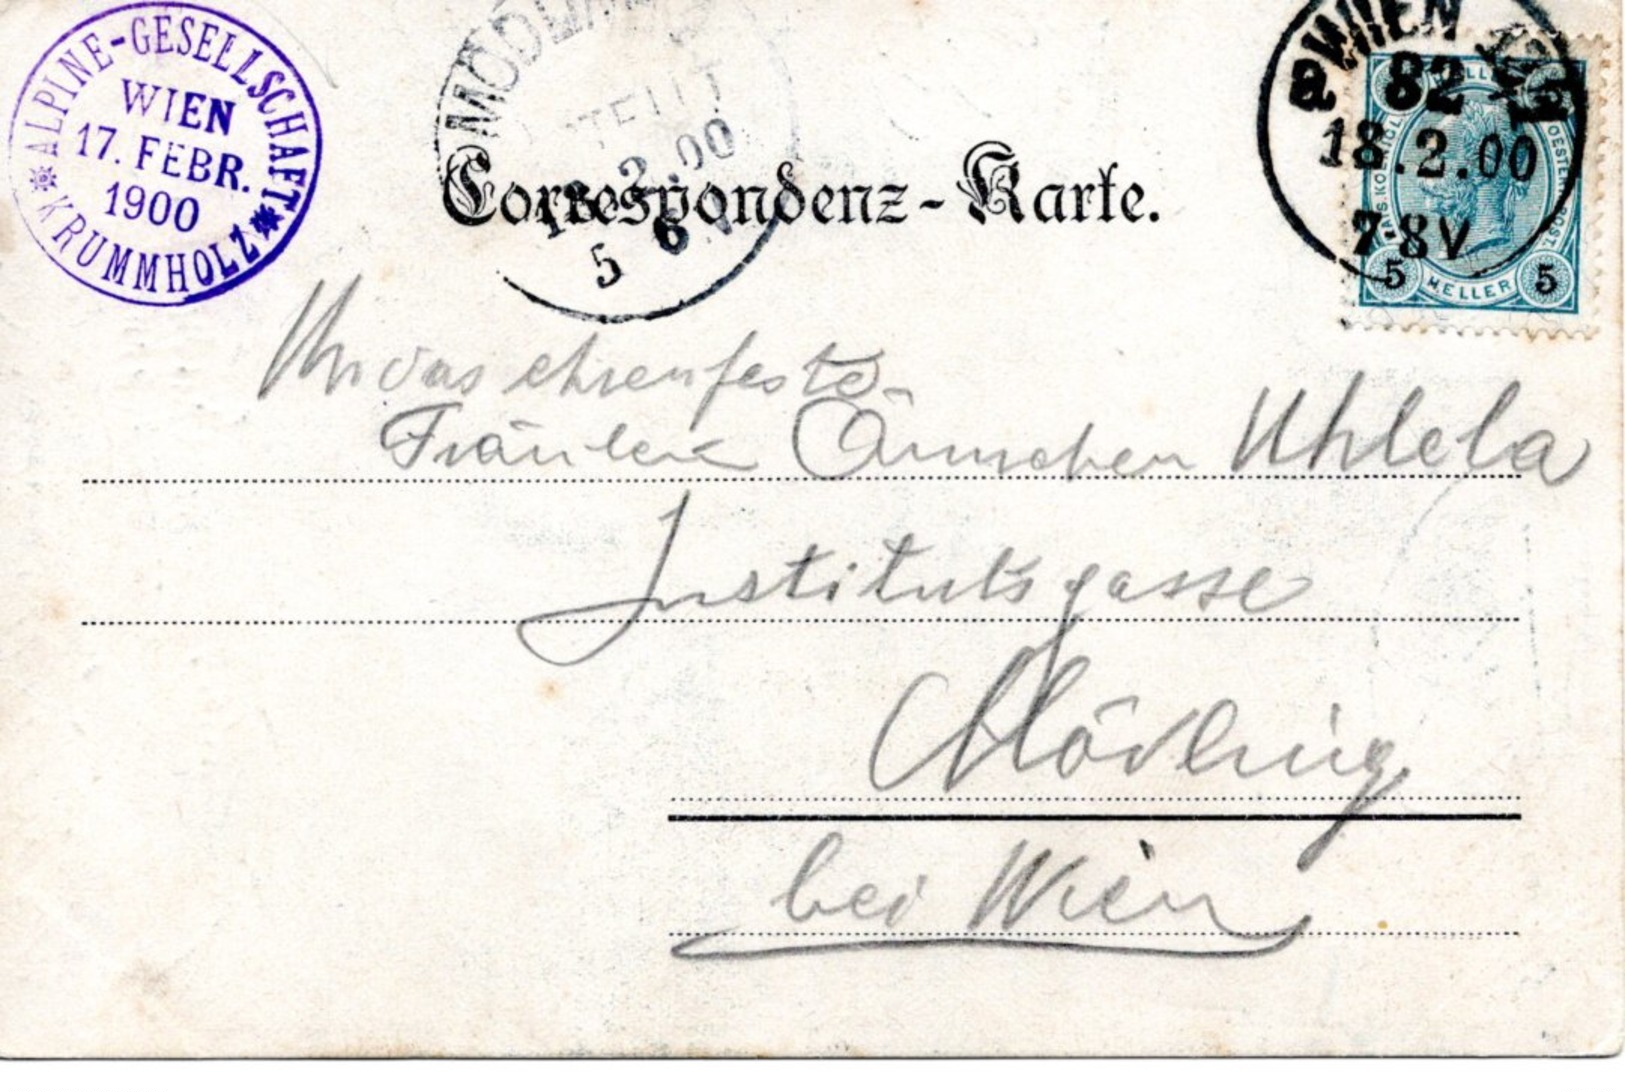 ALPINE-GESELLSCHAFT
WIEN
17. FEBR.
1900
* KRUMMHOLZ *
WIEN
a 82
18.2.00
7-8V
5 HELLER 5
Correspondenz-Karte.
2.00
5 6
An das ehrenfeste
Fräulein Ännchen Uhlela
Institutsgasse
Mödling
bei Wien